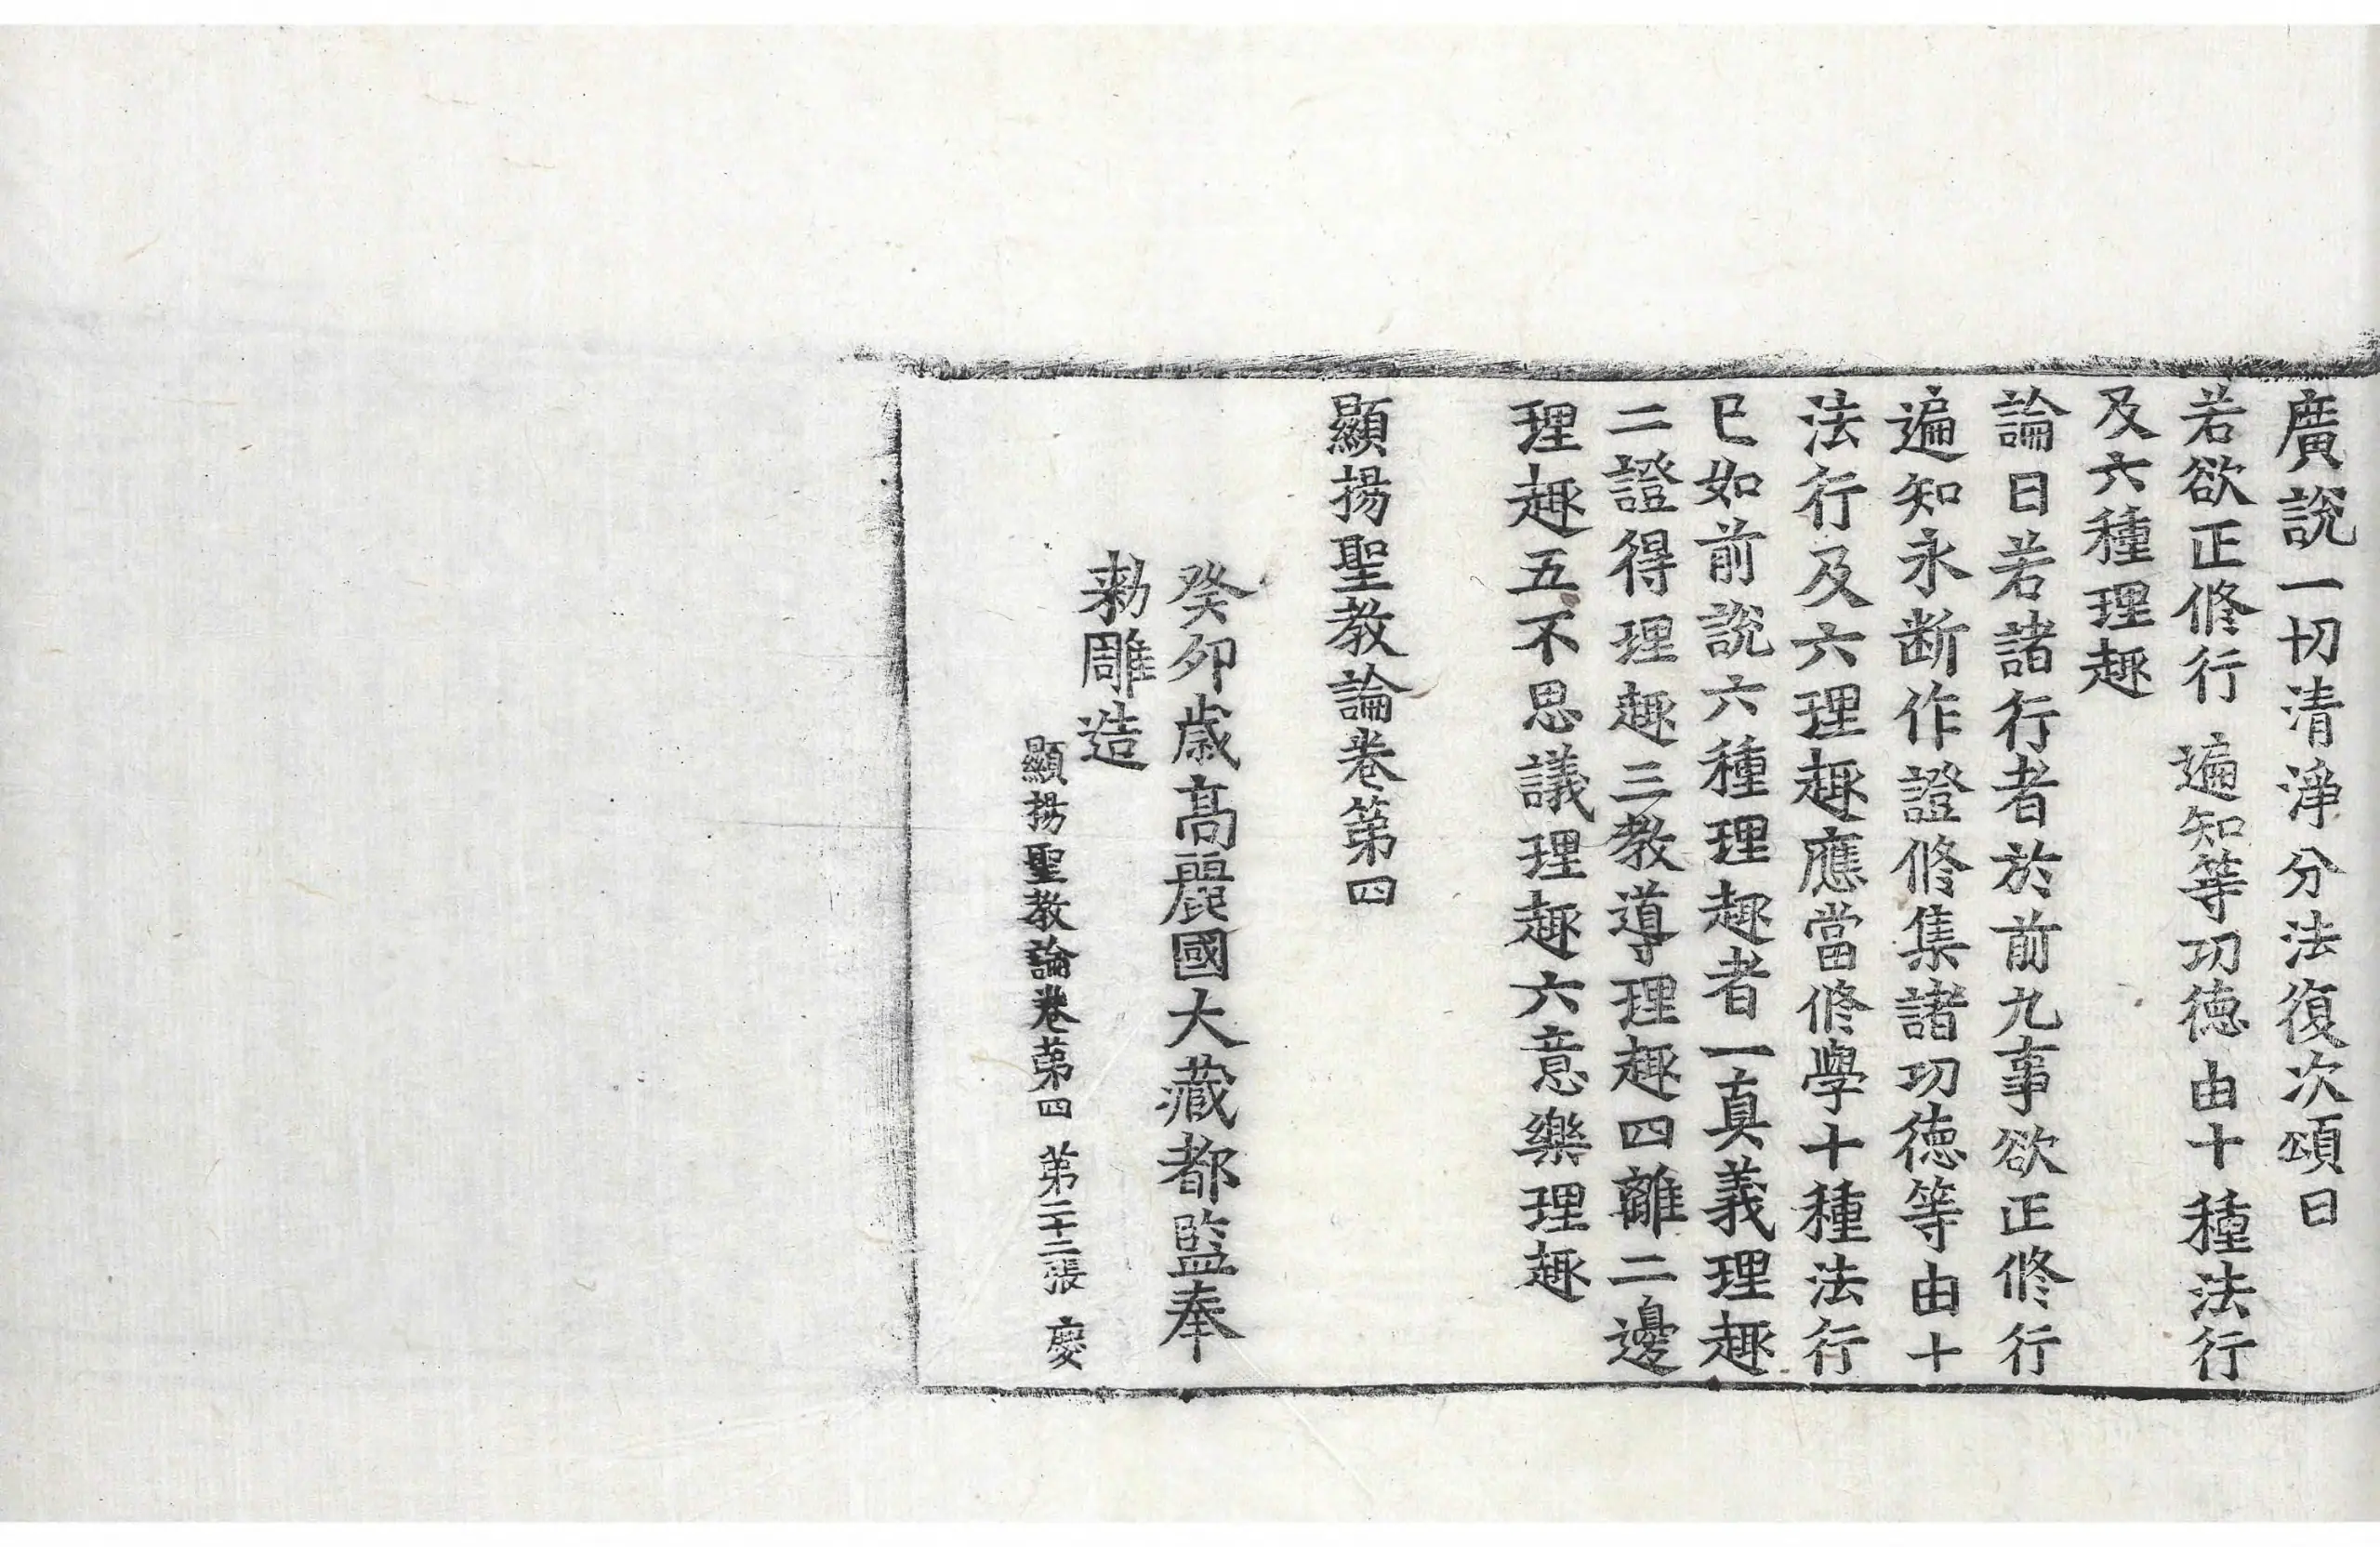 廣說一切清淨分法復次頌曰
若欲正修行 遍知等功德 由十種法行
及六種理趣
論曰若諸行者於前九事欲正修行
遍知永断作證修集諸功德等由十
法行及六理趣應當修學十種法行
已如前說六種理趣者一真義理趣
二證得理趣三教導理趣四離二邊
理趣五不思議理趣六意樂理趣
顯揚聖教論卷第四
癸卯歲高麗國大藏都監奉
勑雕造
顯揚聖教論卷第四 第二十二張 慶